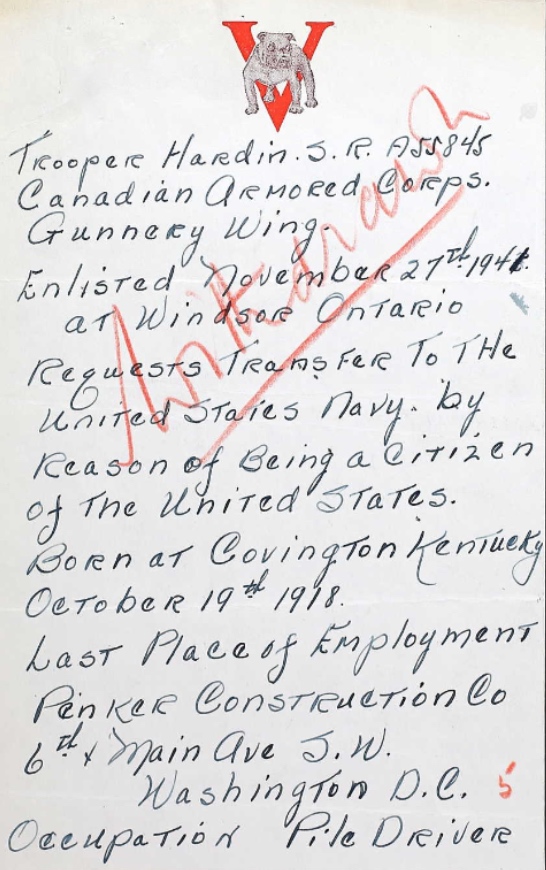 V
Trooper Hardin. S. R. A55845
Canadian Armored Corps.
Gunnery Wing.
Enlisted November 27th 1941.
at Windsor Ontario
Withdrawn
Requests Transfer To THe
United States Navy. by
Reason of Being a Citizen
of The United States.
Born at Covington Kentucky
October 19th 1918.
Last Place of Employment
Penker Construction Co
6th & Main Ave S.W.
Washington D.C. 5
Occupation Pile Driver